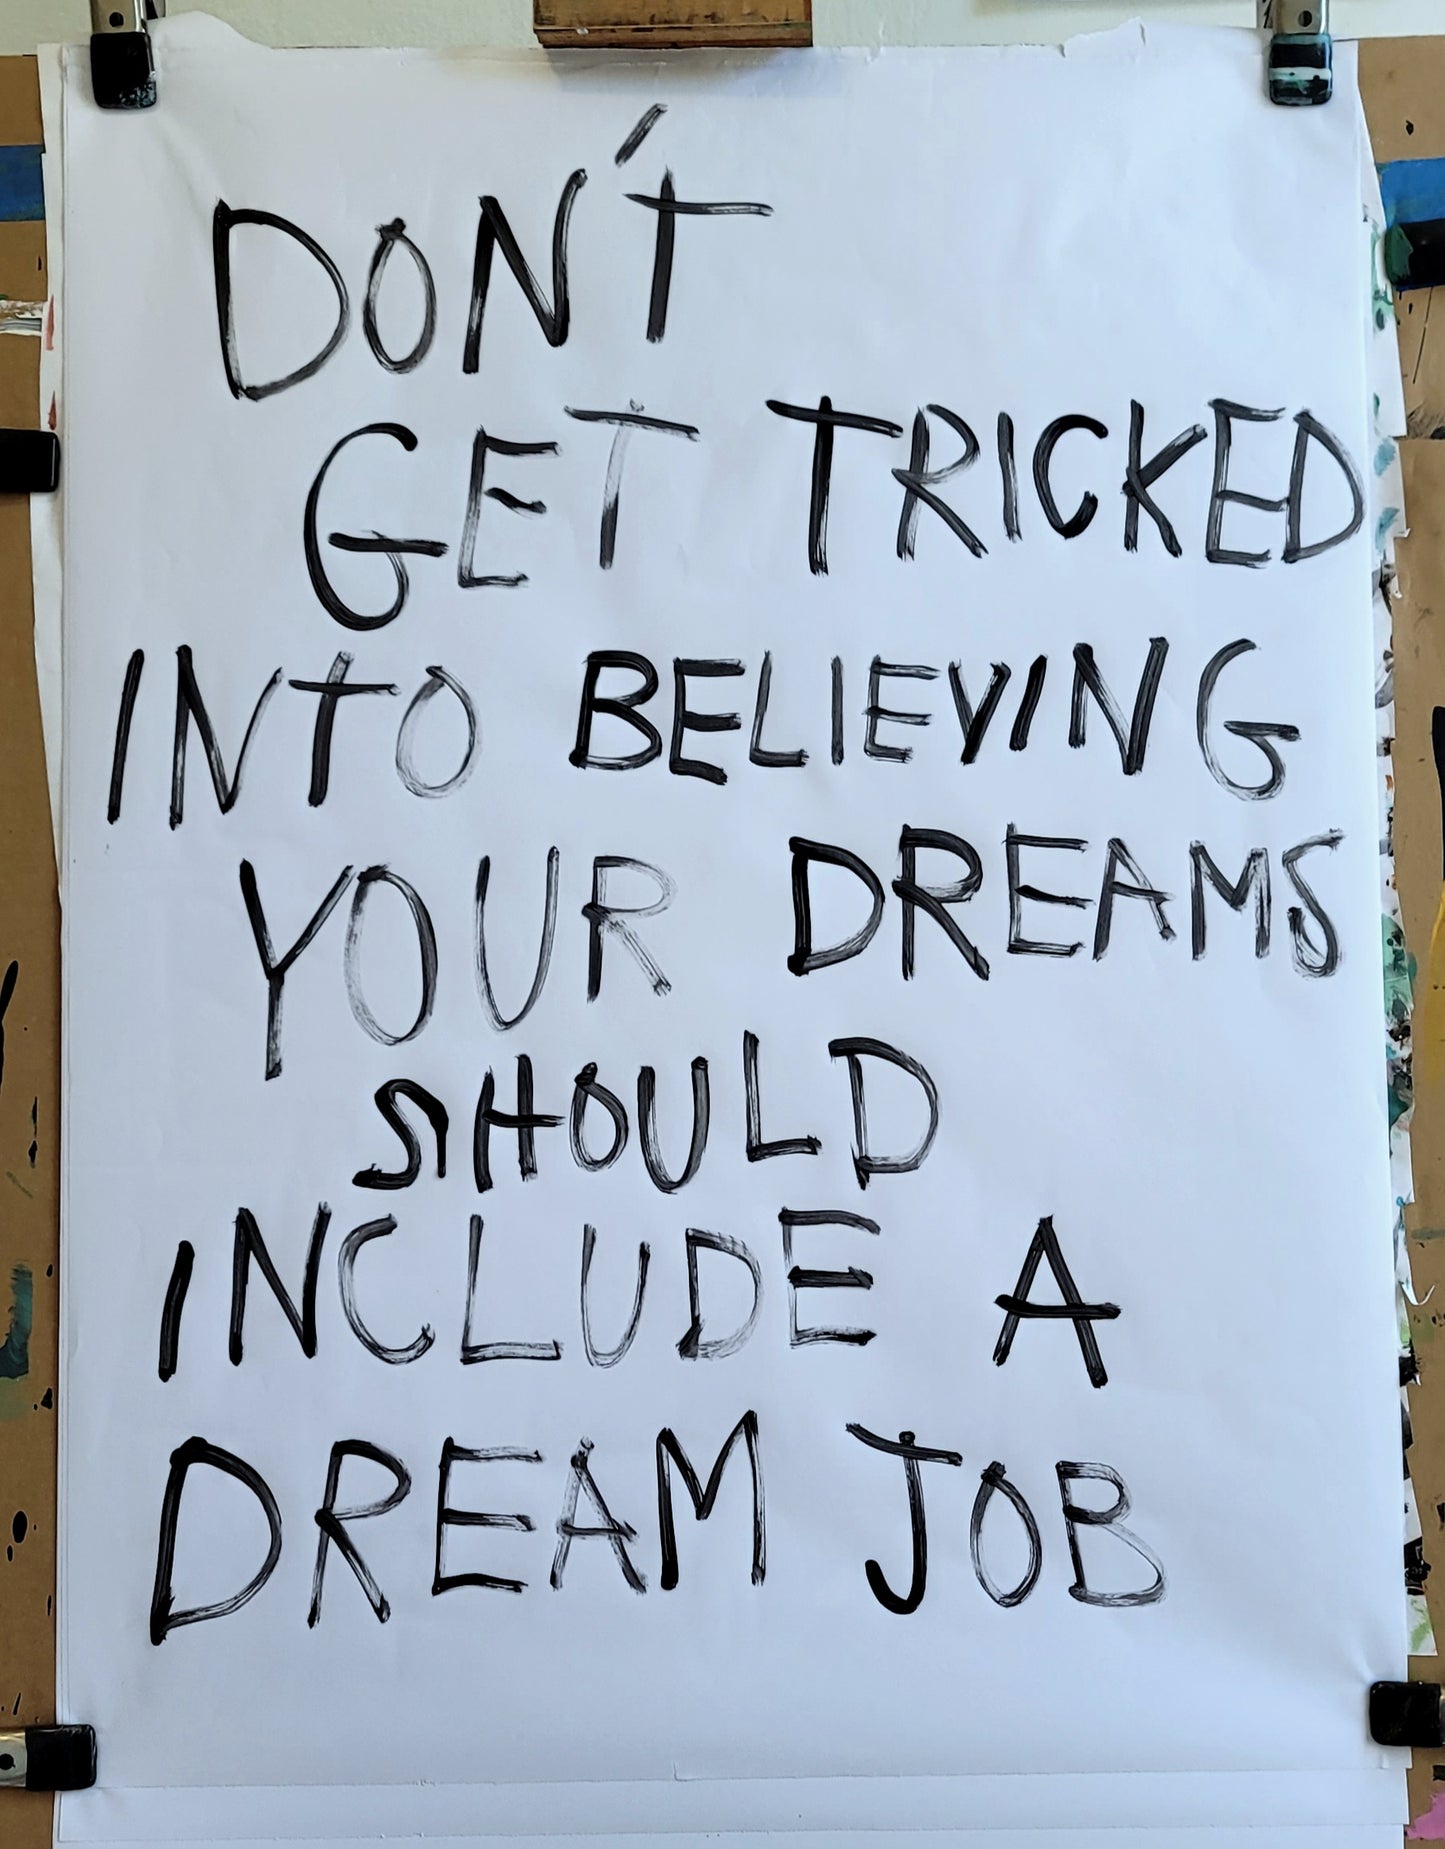 DON´T
GET TRICKED
INTO BELIEVING
YOUR DREAMS
SHOULD
INCLUDE A
DREAM JOB